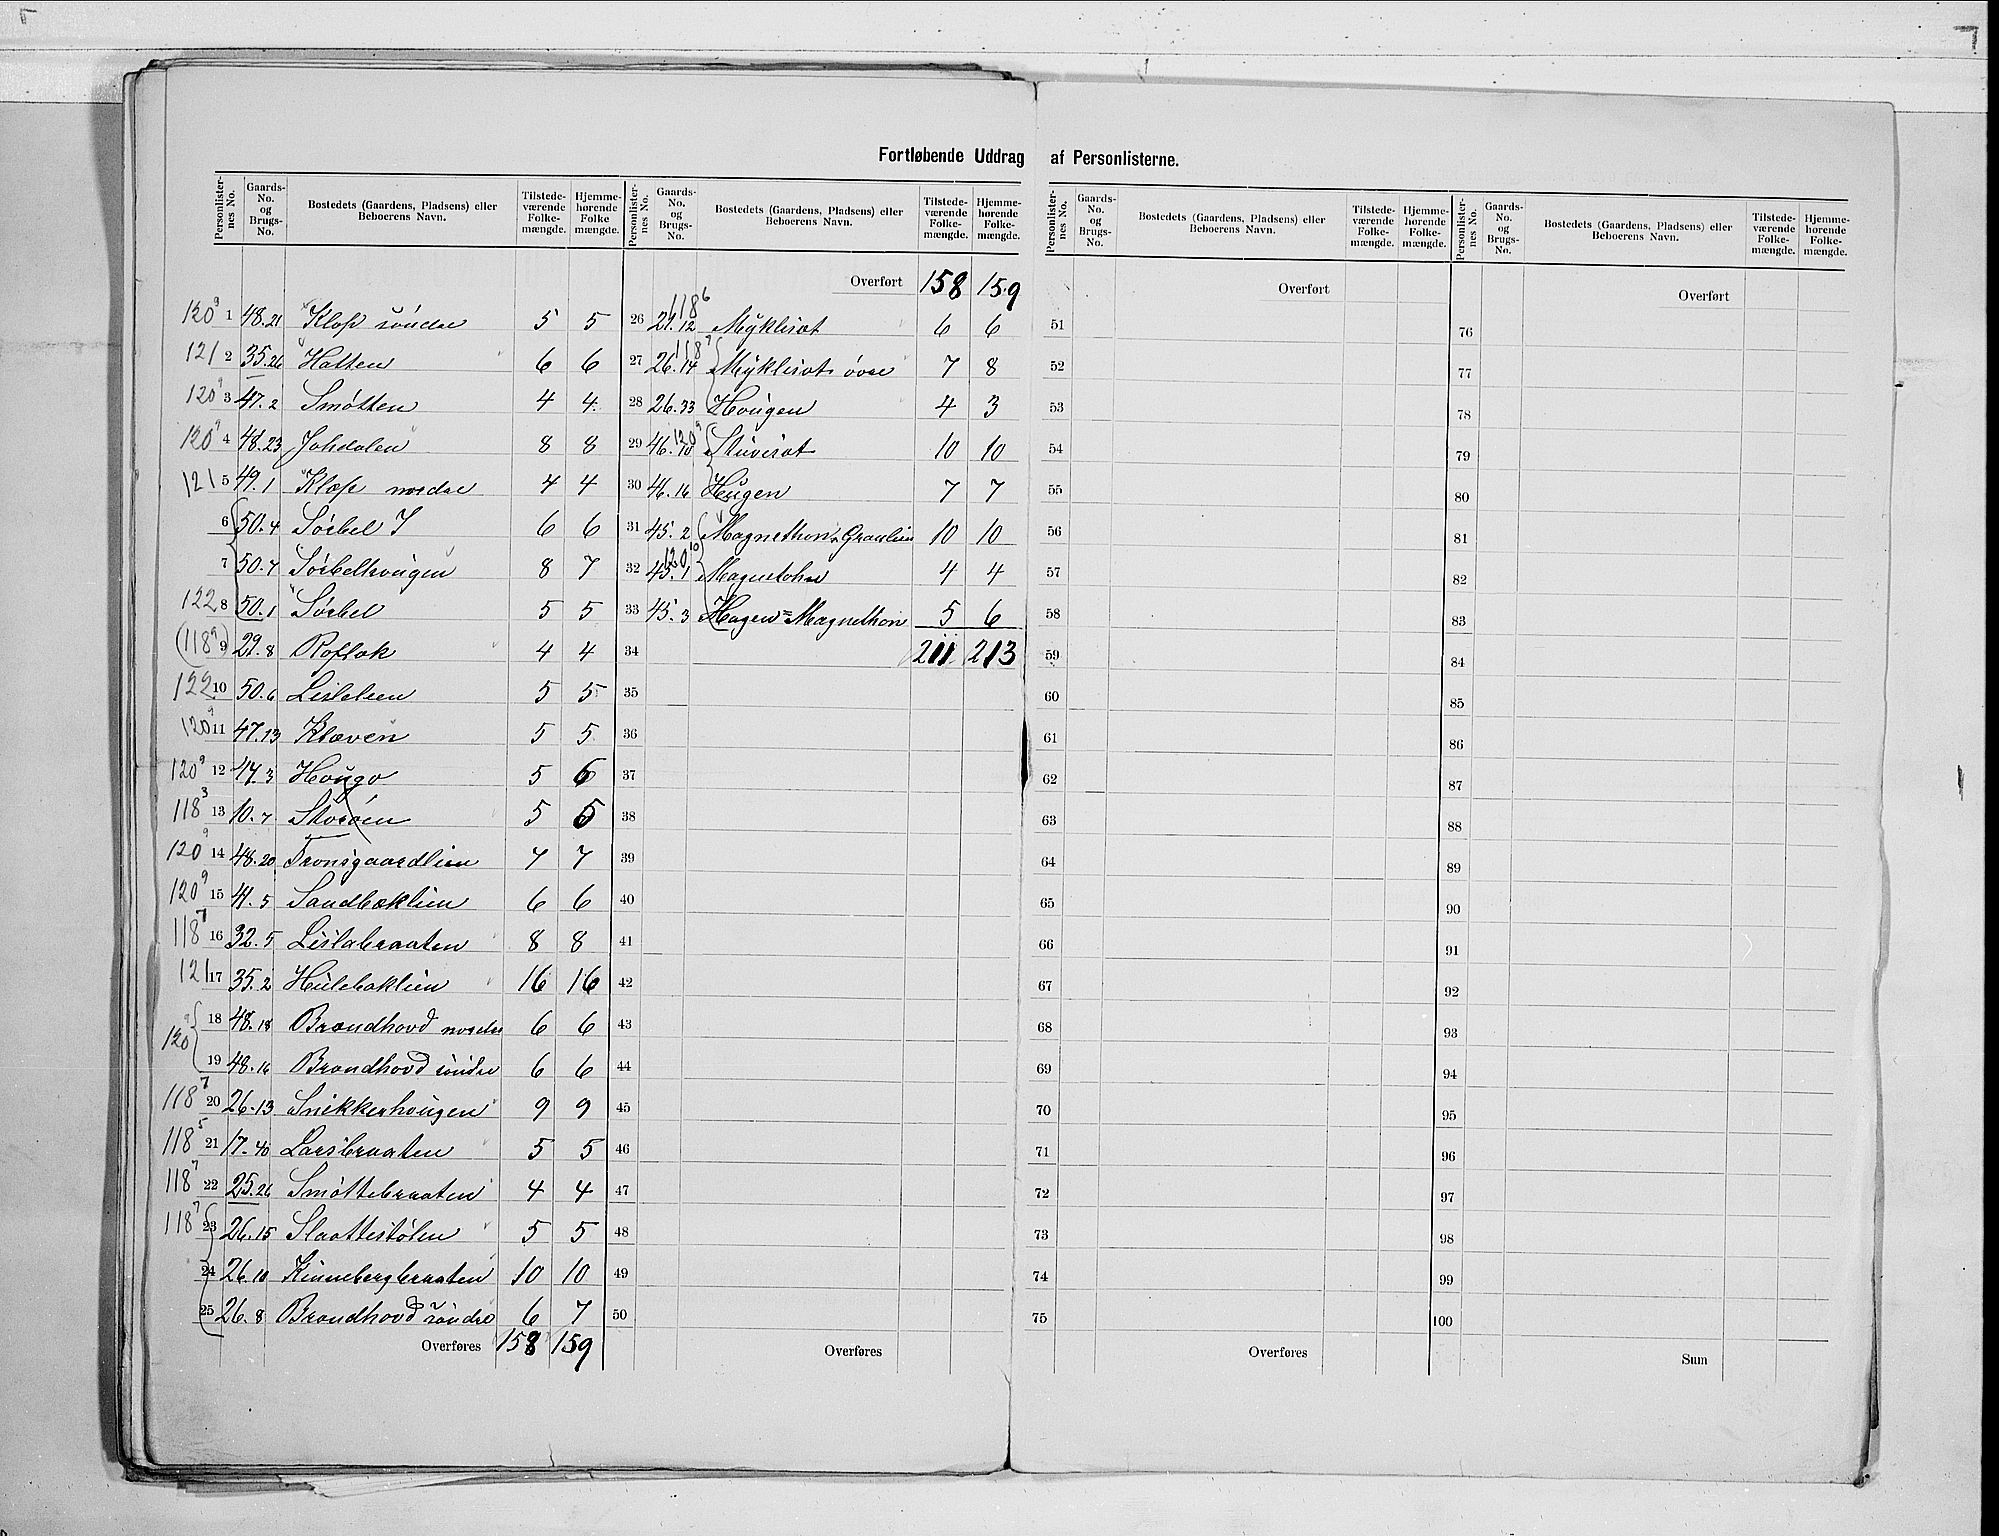 Fortløbende Uddrag af Personlisterne.
Personlister-nes No. Gaards-No. og Brugs-No. Bostedets (Gaardens, Pladsens) eller Beboerens Navn. Tilstede-værende Folke-mængde. Hjemme-hørende Folke mængde.
120⁹ 1 48.21 Klop söndre 5 5
121 2 35.26 Hatten 6 6
120⁹ 3 47.2 Smøtten 4 4
120⁹ 4 48.23 Johdalen 8 8
121 5 49.1 Klop nordre 4 4
6 50.4 Sørbel I 6 6
7 50.7 Sørbelhougen 8 7
122 8 50.1 Sørbel 5 5
(118⁹) 9 29.8 Roflok 4 4
122 10 50.6 Lislelien 5 5
120⁹ 11 47.13 Kløven 5 5
120⁹ 12 47.3 Hougo 5 6
118³ 13 10.7 Storöen 5 5
120⁹ 14 48.20 Tronsgaardlien 7 7
120⁹ 15 41.5 Sandbæklien 6 6
118⁷ 16 32.5 Lislabraaten 8 8
121 17 35.2 Hulebaklien 16 16
120⁹ 18 48.18 Brandhovd nordre 6 6
19 48.16 Brandhovd söndre 6 6
118⁷ 20 26.13 Snikkerhougen 9 9
118⁵ 21 17.40 Larsbraaten 5 5
118⁷ 22 25.26 Smøttebraaten 4 4
118⁷ 23 26.15 Slaattestølen 5 5
24 26.10 Kinnebergbraaten 10 10
25 26.8 Brandhovd söndre 6 7
Overføres 158 159
Personlister-nes No. Gaards-No. og Brugs-No. Bostedets (Gaardens, Pladsens) eller Beboerens Navn. Tilstede-værende Folke-mængde. Hjemme-hørende Folke-mængde.
Overført 158 159
118⁶
26 21.12 Myklirot 6 6
118⁷
27 26.14 Myklirot övre 7 8
28 26.33 Hougen 4 3
120⁹
29 46.10 Stuverot 10 10
30 46.16 Hugen 7 7
31 45.2 Magnethon Granlien 10 10
120¹⁰
32 45.1 Magnetohn 4 4
33 45.3 Hagen=Magnethon 5 6
34 211 213
35
36
37
38
39
40
41
42
43
44
45
46
47
48
49
50
Overføres
Personlister-nes No. Gaards-No. og Brugs-No. Bostedets (Gaardens, Pladsens) eller Beboerens Navn. Tilstede-værende Folke-mængde. Hjemme-hørende Folke-mængde.
Overført
51
52
53
54
55
56
57
58
59
60
61
62
63
64
65
66
67
68
69
70
71
72
73
74
75
Overføres
Personlister-nes No. Gaards-No. og Brugs-No. Bostedets (Gaardens, Pladsens) eller Beboerens Navn. Tilstede-værende Folke-mængde. Hjemme-hørende Folke-mængde.
Overført
76
77
78
79
80
81
82
83
84
85
86
87
88
89
90
91
92
93
94
95
96
97
98
99
100
Sum